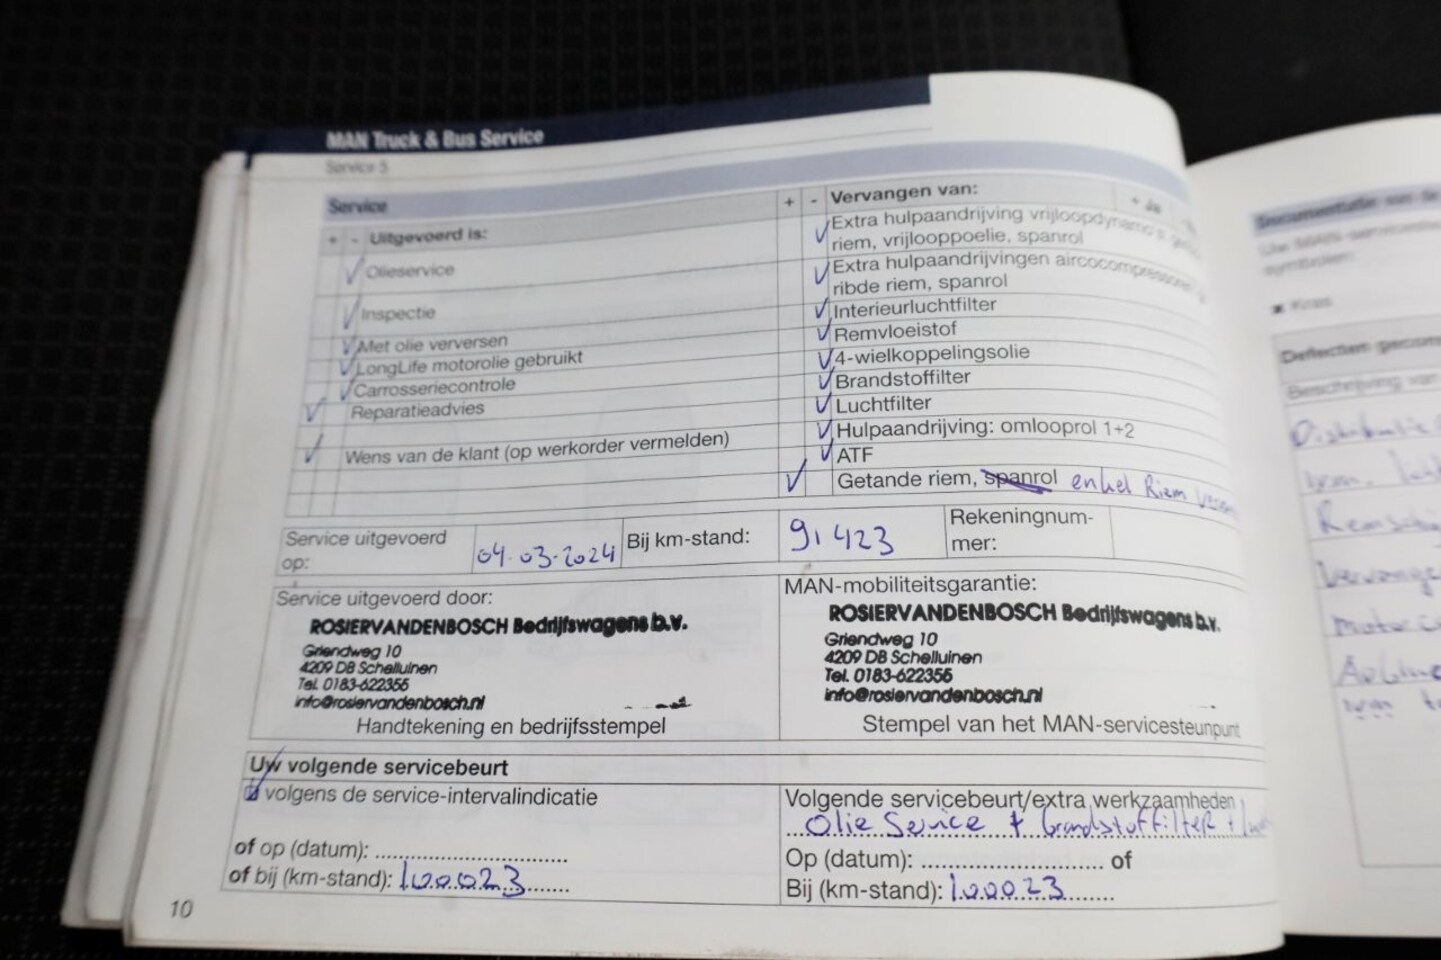 MAN Truck & Bus Service
Service 5
Service
+ - Uitgevoerd is:
Olieservice
Inspectie
Met olie verversen
LongLife motorolie gebruikt
Carrosseriecontrole
Reparatieadvies
Wens van de klant (op werkorder vermelden)
+ - Vervangen van:
+ Je
Extra hulpaandrijving vrijloopdynamo's
riem, vrijlooppoelie, spanrol
Extra hulpaandrijvingen aircocompressoren
ribde riem, spanrol
Interieurluchtfilter
Remvloeistof
4-wielkoppelingsolie
Brandstoffilter
Luchtfilter
Hulpaandrijving: omlooprol 1+2
ATF
Getande riem, spanrol enkel Riem
Service uitgevoerd
op:
04-03-2024
Bij km-stand:
91423
Rekeningnum-
mer:
Service uitgevoerd door:
ROSIERVANDENBOSCH Bedrijfswagens b.v.
Griendweg 10
4209 DB Schelluinen
Tel. 0183-622355
info@rosiervandenbosch.nl
Handtekening en bedrijfsstempel
MAN-mobiliteitsgarantie:
ROSIERVANDENBOSCH Bedrijfswagens b.v.
Griendweg 10
4209 DB Schelluinen
Tel. 0183-622355
info@rosiervandenbosch.nl
Stempel van het MAN-servicesteunpunt
Uw volgende servicebeurt
volgens de service-intervalindicatie
of op (datum): ..............................
of bij (km-stand): 100023
Volgende servicebeurt/extra werkzaamheden
Olie Service + brandstoffilter +
Op (datum): ............................ of
Bij (km-stand): 100023
10
Documentatie van de
symbolen:
Kras
Beschrijving van